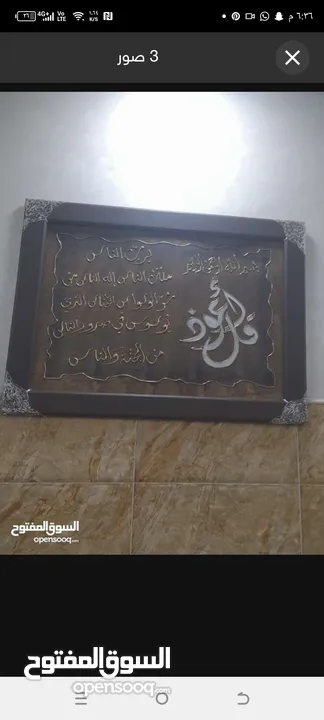 ٦:٣٦ م
١.٦٤ K/S
Vo LTE
4G+
٢٦
3 صور
بسم الله الرحمن الرحيم
قل أعوذ
برب الناس
ملك الناس إله الناس من
شر الوسواس الخناس الذي
يوسوس في صدور الناس
من الجنة والناس
السوق المفتوح
opensooq.com
السوق المفتوح
opensooq.com